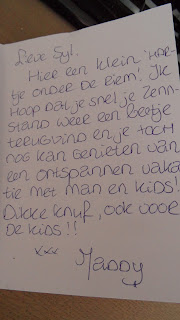 Lieve Syl.
Hier een klein 'HAR-
tje ONDER DE RIEM! IK
HOOP DAT je snel je ZENN-
STAND WEER een BEETJE
TERUGVIND en je TOCH
NOG KAN GENIETEN VAN
een ONTSPANNEN VAKA
TIE MET MAN en KIDS!
DIKKE KNUF, OOK VOOR
DE KIDS!!
xxx MADDY